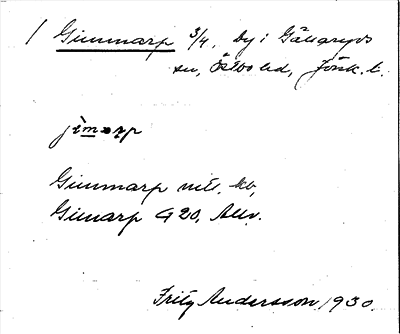 / Gimmarp 3/4, by i Gällaryds
sn, Östbo hd, Jönk. l.
jìmarp
Gimmarp mtl. kb,
Gimarp G 20, Allv.
Fritz Andersson 1930.